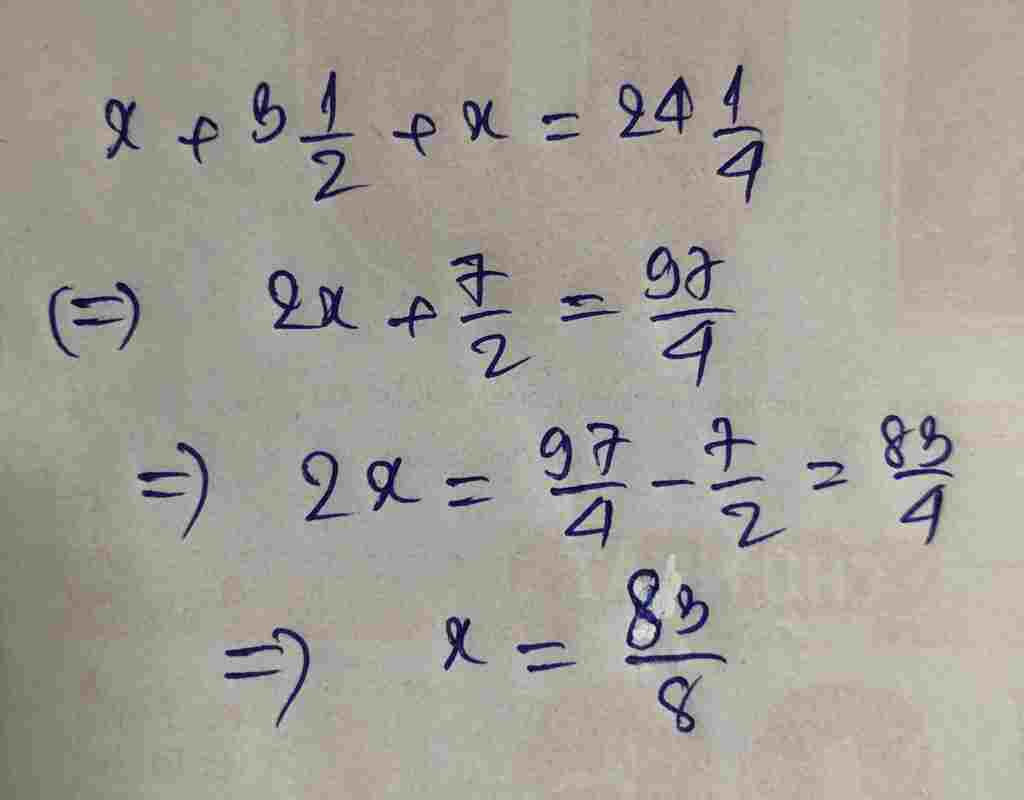 x + 3 1/2 + x = 24 1/4
(=) 2x + 7/2 = 97/4
=) 2x = 97/4 - 7/2 = 83/4
=) x = 83/8